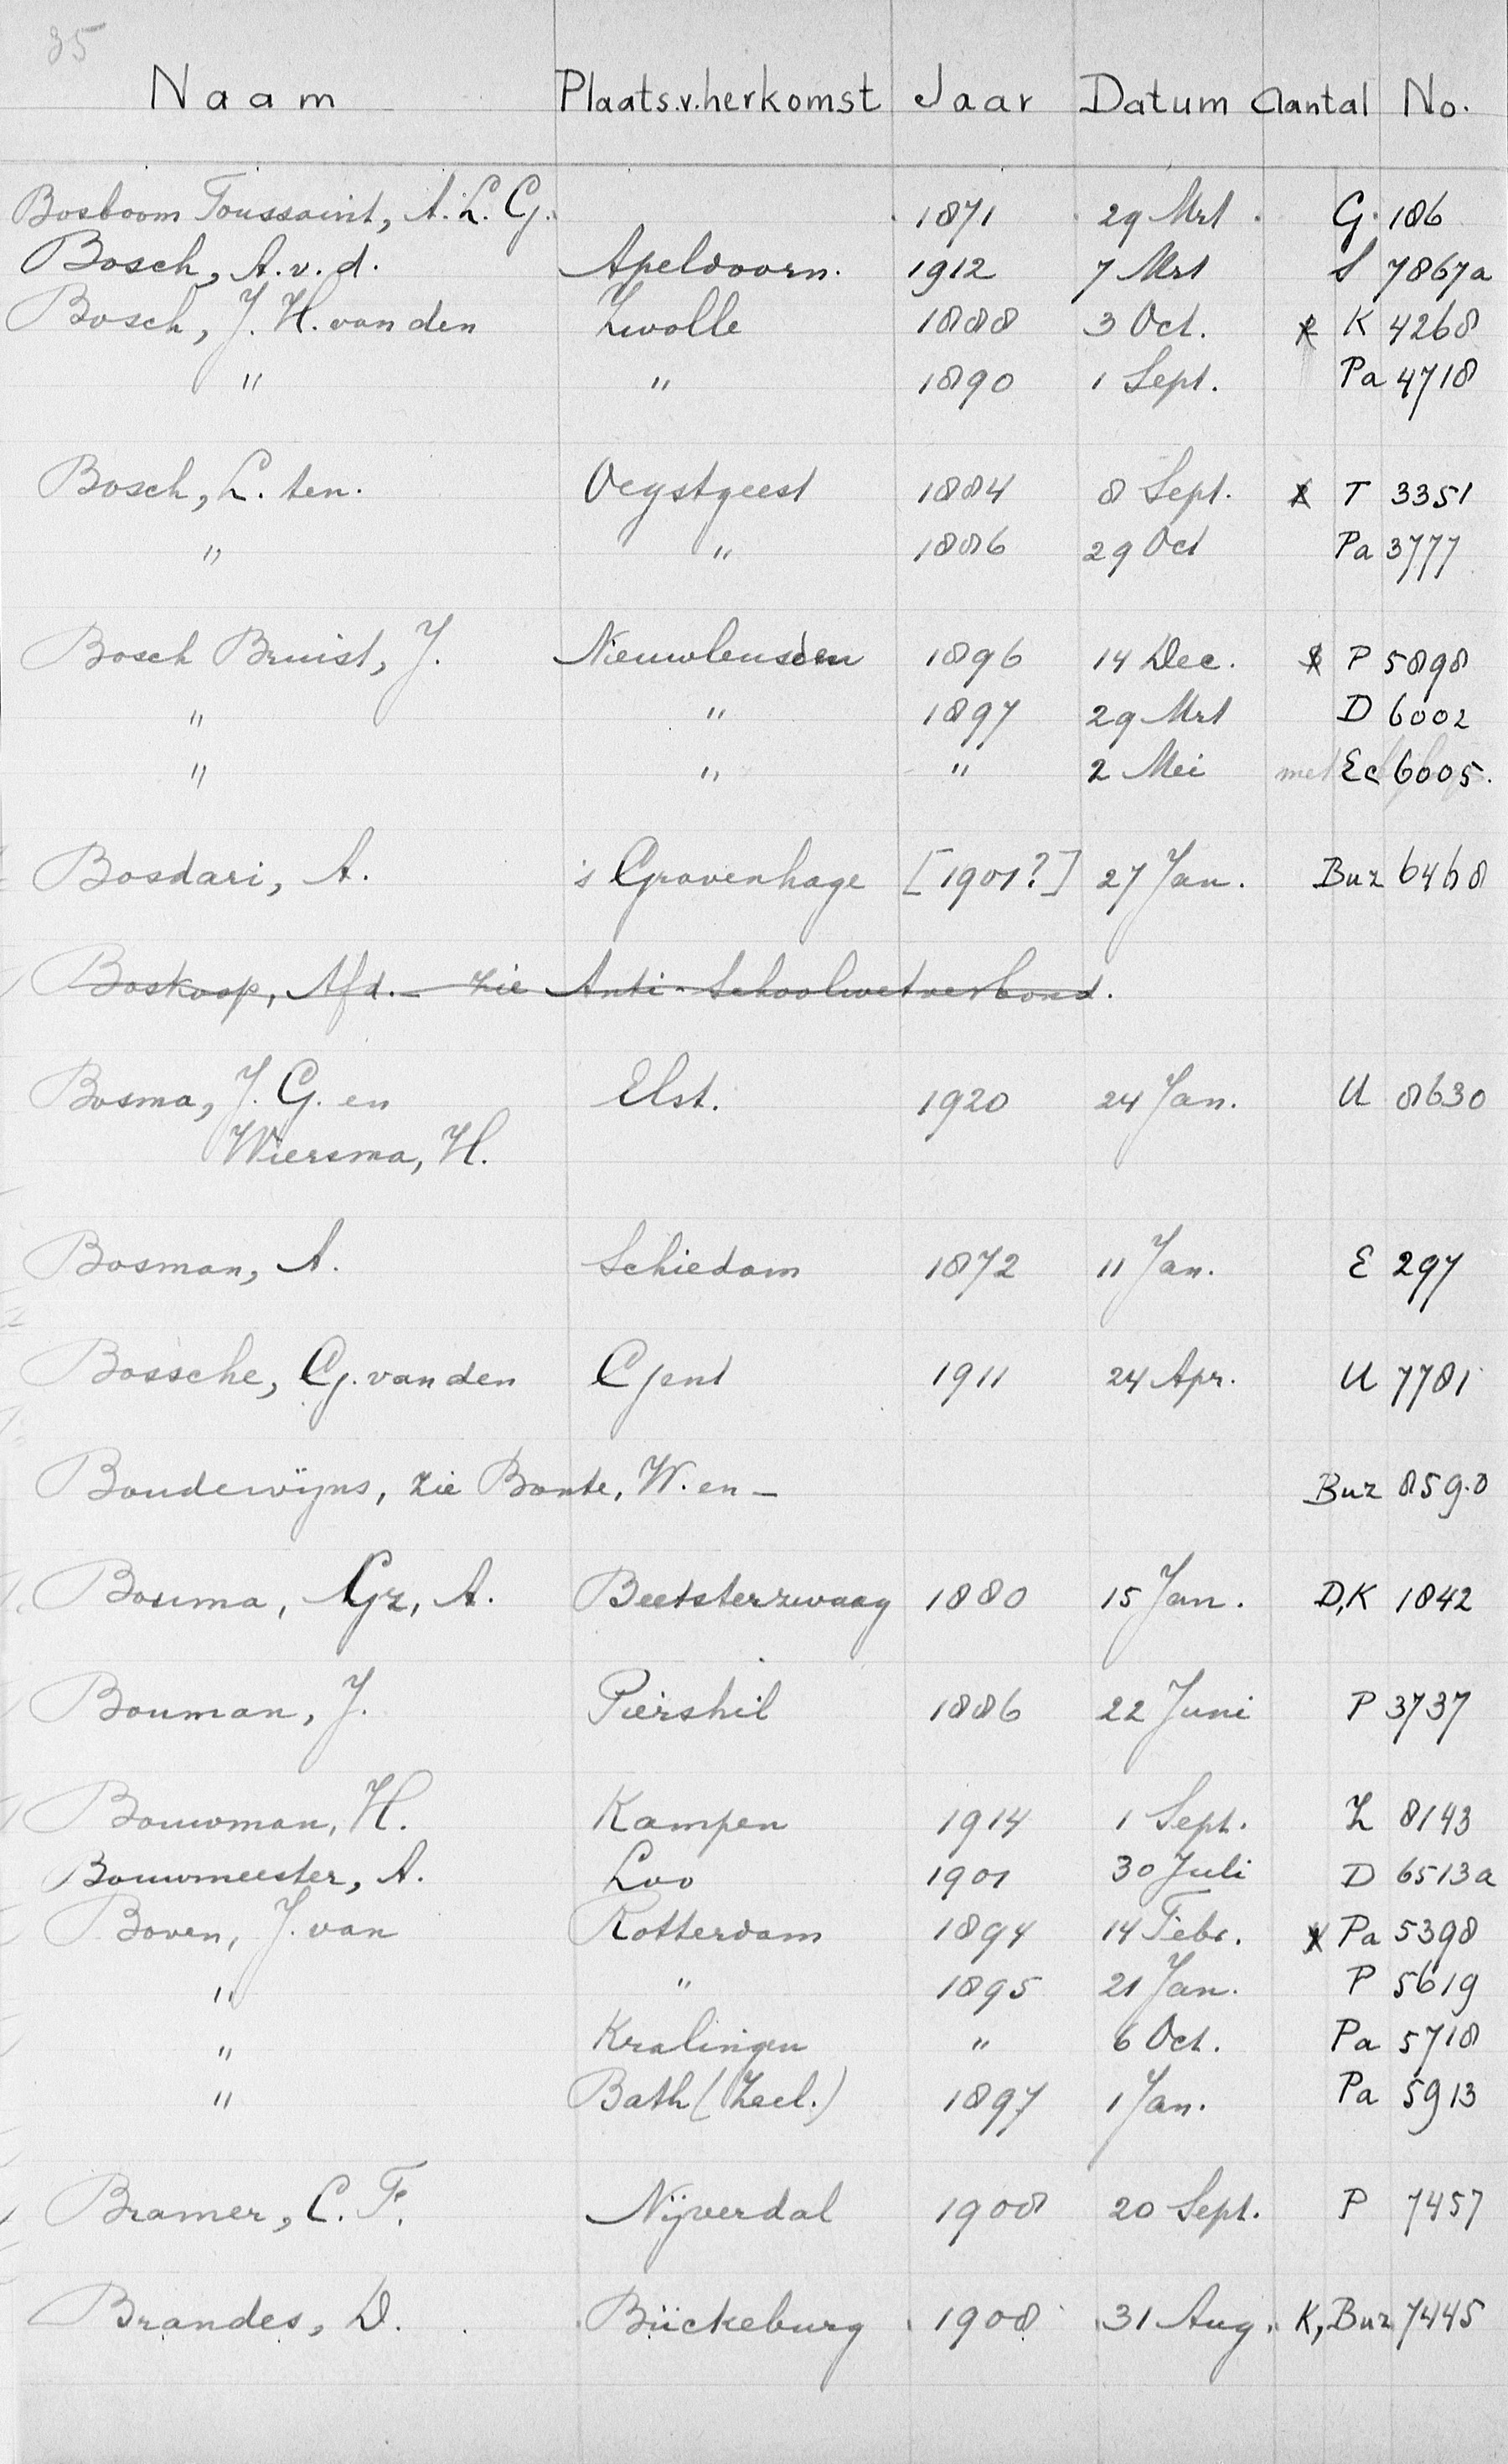 35
Naam Plaats v. herkomst Jaar Datum Aantal No.
Bosboom Toussaint, A. L. G. 1871 29 Mrt G. 186
Bosch, A. v. d. Apeldoorn. 1912 7 Mrt S 7867a
Bosch, J. H. van den Zwolle 1888 3 Oct. K 4268
" " 1890 1 Sept. Pa 4718
Bosch, L. ten. Oegstgeest 1884 8 Sept. T 3351
" " 1886 29 Oct Pa 3777
Bosch Bruist, J. Nieuwleusden 1896 14 Dec. P 5898
" " 1897 29 Mrt D 6002
" " " 2 Mei met Ec 6005.
Bosdari, A. 's Gravenhage [1901?] 27 Jan. Buz 6468
Boskoop, Afd. - zie Anti-Schoolwetverbond.
Bosma, J. G. en Elst. 1920 24 Jan. U 8630
Wiersma, H.
Bosman, A. Schiedam 1872 11 Jan. E 297
Bossche, G. van den Gent 1911 24 Apr. U 7781
Boudewijns, zie Bonte, W. en - Buz 8590
Bouma, Gz, A. Beetsterzwaag 1880 15 Jan. D,K 1842
Bouman, J. Piershil 1886 22 Juni P 3737
Bouwman, H. Kampen 1914 1 Sept. Z 8143
Bouwmeester, A. Loo 1901 30 Juli D 6513a
Boven, J. van Rotterdam 1894 14 Febr. Pa 5398
" " 1895 21 Jan. P 5619
" Kralingen " 6 Oct. Pa 5718
" Bath (Zeel.) 1897 1 Jan. Pa 5913
Bramer, C. F. Nijverdal 1908 20 Sept. P 7457
Brandes, D. Bückeburg 1908 31 Aug. K, Buz 7445